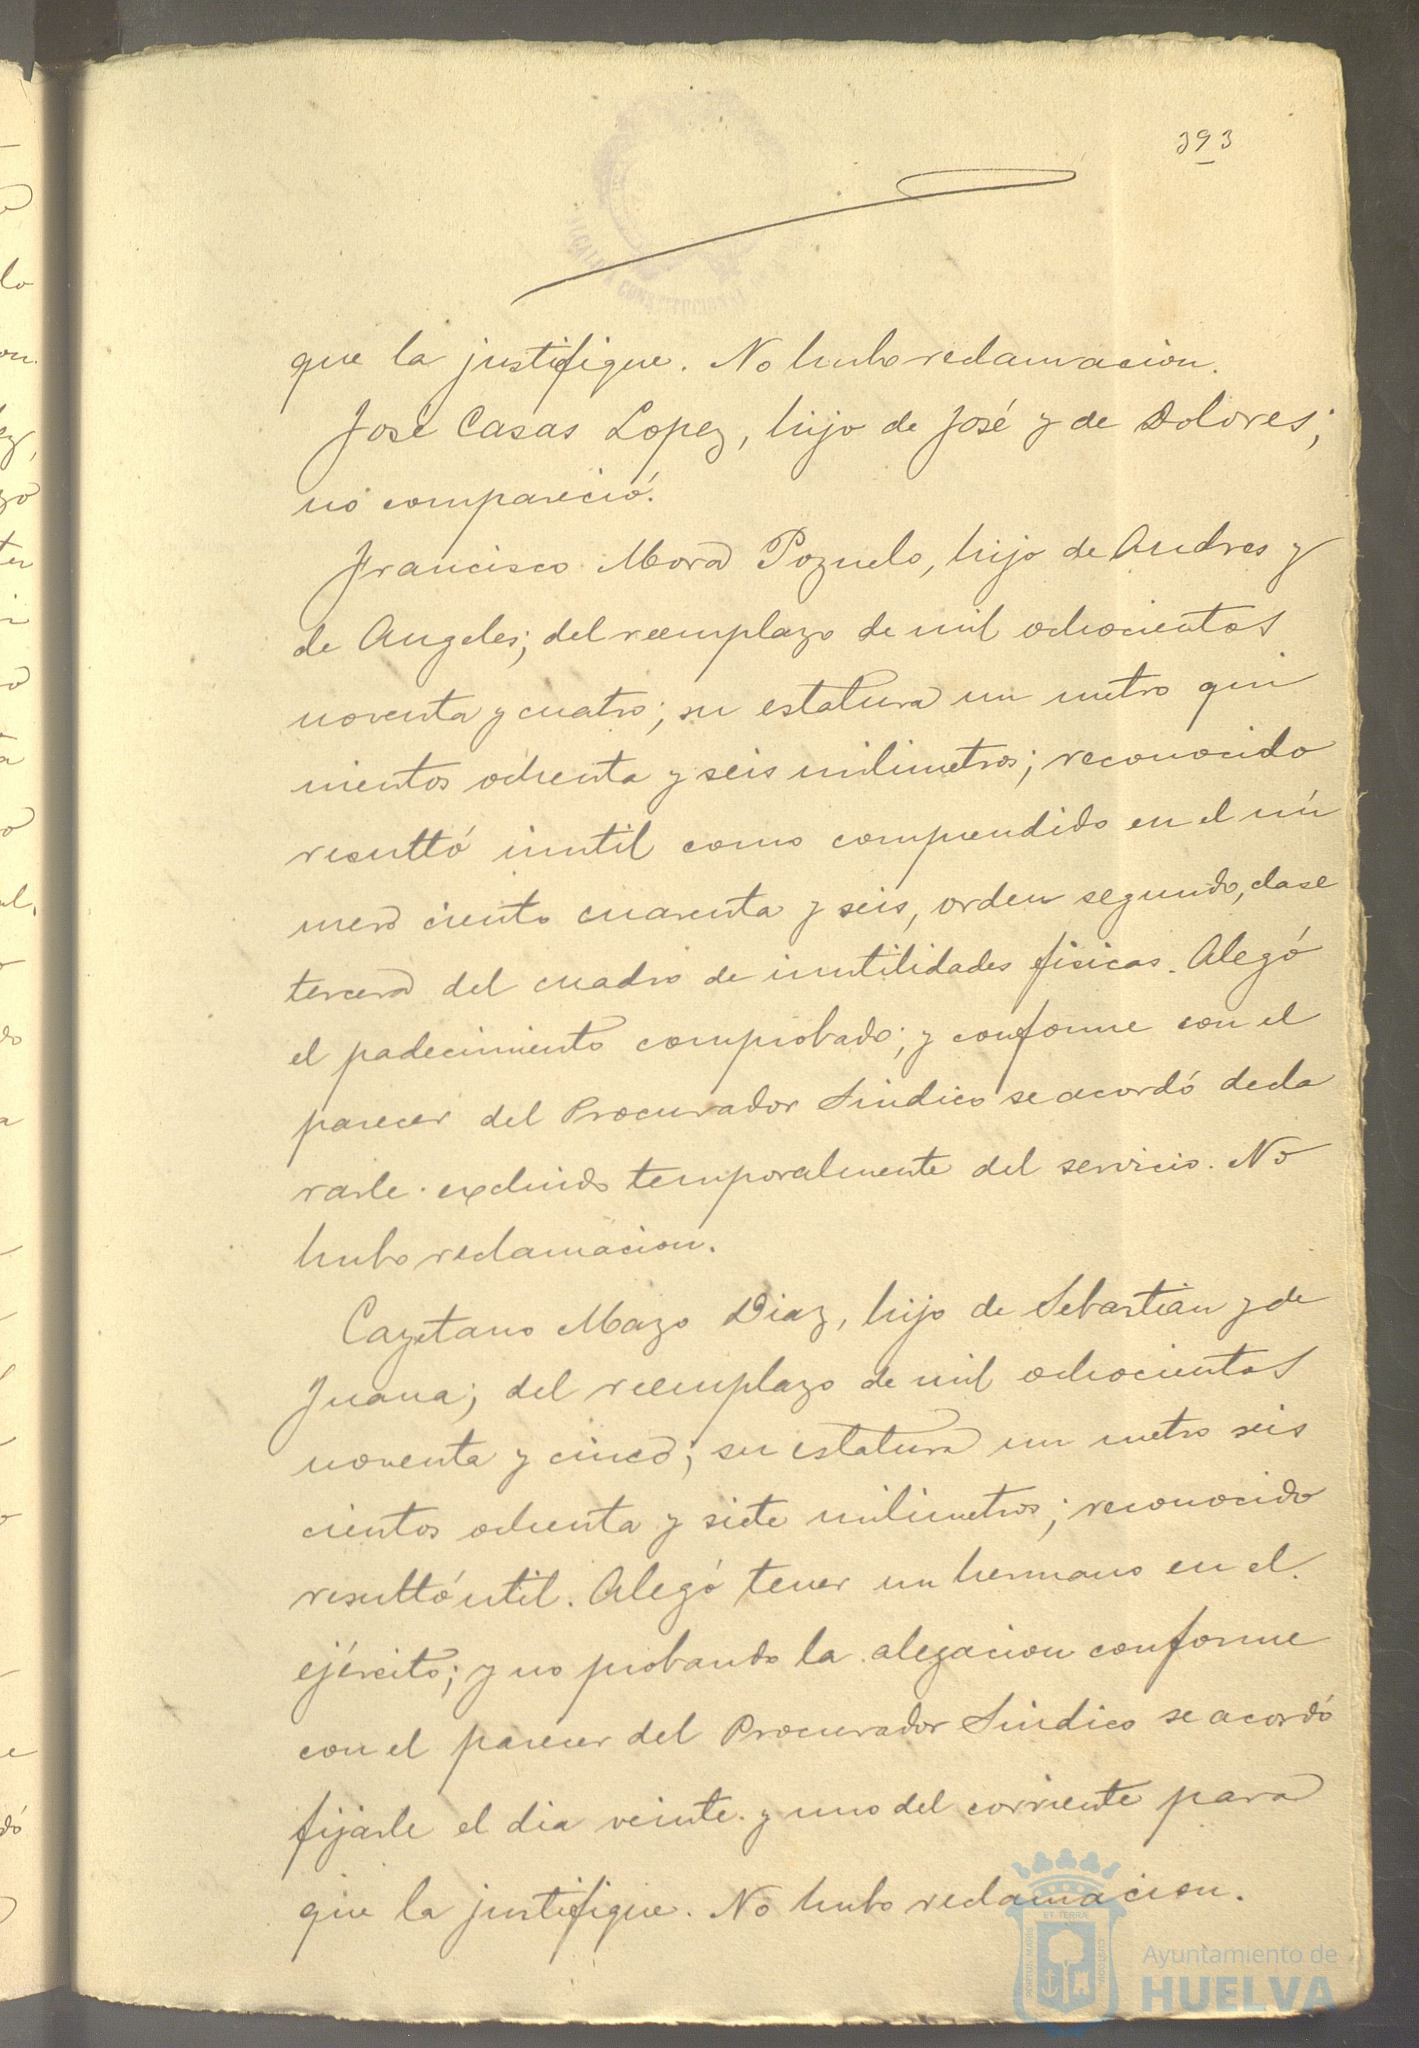 393
ALCALDIA CONSTITUCIONAL
que la justifique. No hubo reclamacion.
José Casas Lopez, hijo de José y de Dolores;
no compareció.
Francisco Mora Pozuelo, hijo de Andres y
de Angeles; del reemplazo de mil ochocientos
noventa y cuatro; su estatura un metro qui
nientos ochenta y seis milimetros; reconocido
resultó inutil como comprendido en el nú
mero ciento cuarenta y seis, orden segundo, clase
tercera del cuadro de inutilidades fisicas. Alegó
el padecimiento comprobado; y conforme con el
parecer del Procurador Sindico se acordó decla
rarle excluido temporalmente del servicio. No
hubo reclamacion.
Cayetano Mazo Diaz, hijo de Sebastian y de
Juana; del reemplazo de mil ochocientos
noventa y cinco; su estatura un metro seis
cientos ochenta y siete milimetros; reconocido
resultó útil. Alegó tener un hermano en el
ejército; y no probando la alegacion conforme
con el parecer del Procurador Sindico se acordó
fijarle el dia veinte y uno del corriente para
que la justifique. No hubo reclamacion.
Ayuntamiento de
HUELVA